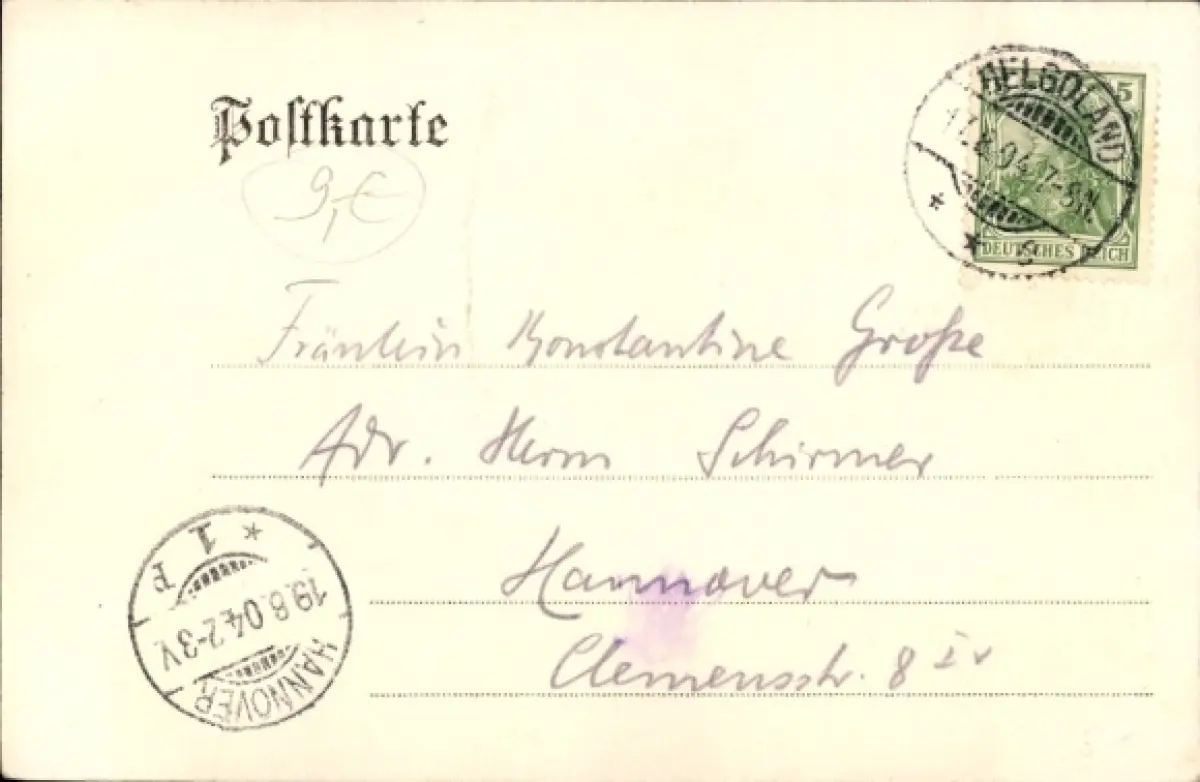 Postkarte
9,-€
HELGOLAND
17.8.04.7-8N.
5
DEUTSCHES REICH
Fräulein Konstantine Große
Adr. Herrn Schirmer
Hannover
Clemensstr. 8 IV
* 1 F
19.8.04.2-3V.
HANNOVER